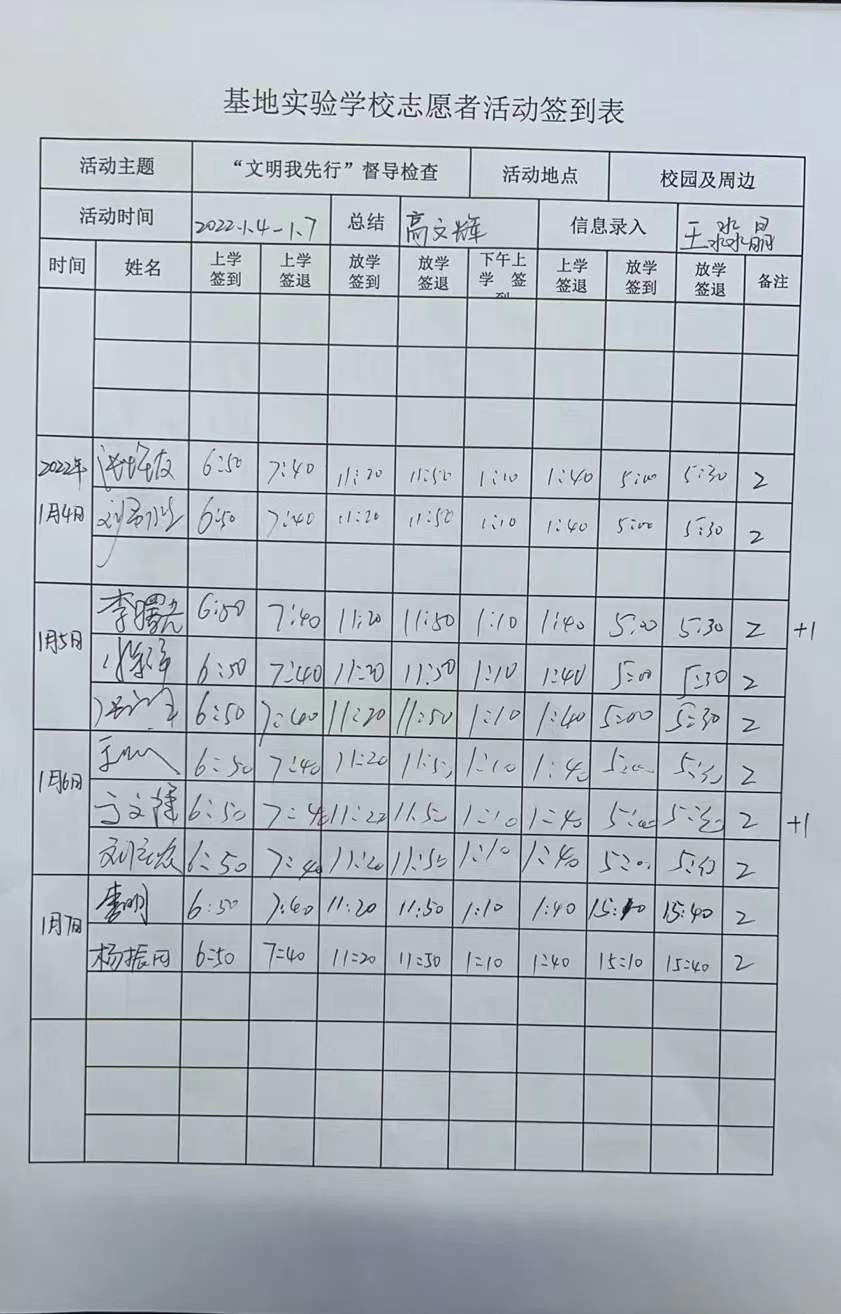 基地实验学校志愿者活动签到表
活动主题 “文明我先行”督导检查 活动地点 校园及周边
活动时间 2022.1.4-1.7 总结 高文辉 信息录入 王淼晶
时间 姓名 上学签到 上学签退 放学签到 放学签退 下午上学 签到 上学签退 放学签到 放学签退 备注
2022年1月4日 6:50 7:40 11:20 11:50 1:10 1:40 5:00 5:30 2
6:50 7:40 11:20 11:50 1:10 1:40 5:00 5:30 2
1月5日 李曙光 6:50 7:40 11:20 11:50 1:10 1:40 5:00 5:30 2 +1
6:50 7:40 11:20 11:50 1:10 1:40 5:00 5:30 2
6:50 7:40 11:20 11:50 1:10 1:40 5:00 5:30 2
1月6日 6:50 7:40 11:20 11:50 1:10 1:40 5:00 5:30 2
6:50 7:40 11:20 11:50 1:10 1:40 5:00 5:30 2 +1
6:50 7:40 11:20 11:50 1:10 1:40 5:00 5:30 2
1月7日 李明 6:50 7:40 11:20 11:50 1:10 1:40 15:10 15:40 2
杨振 6=50 7=40 11=20 11=50 1=10 1=40 15=10 15=40 2